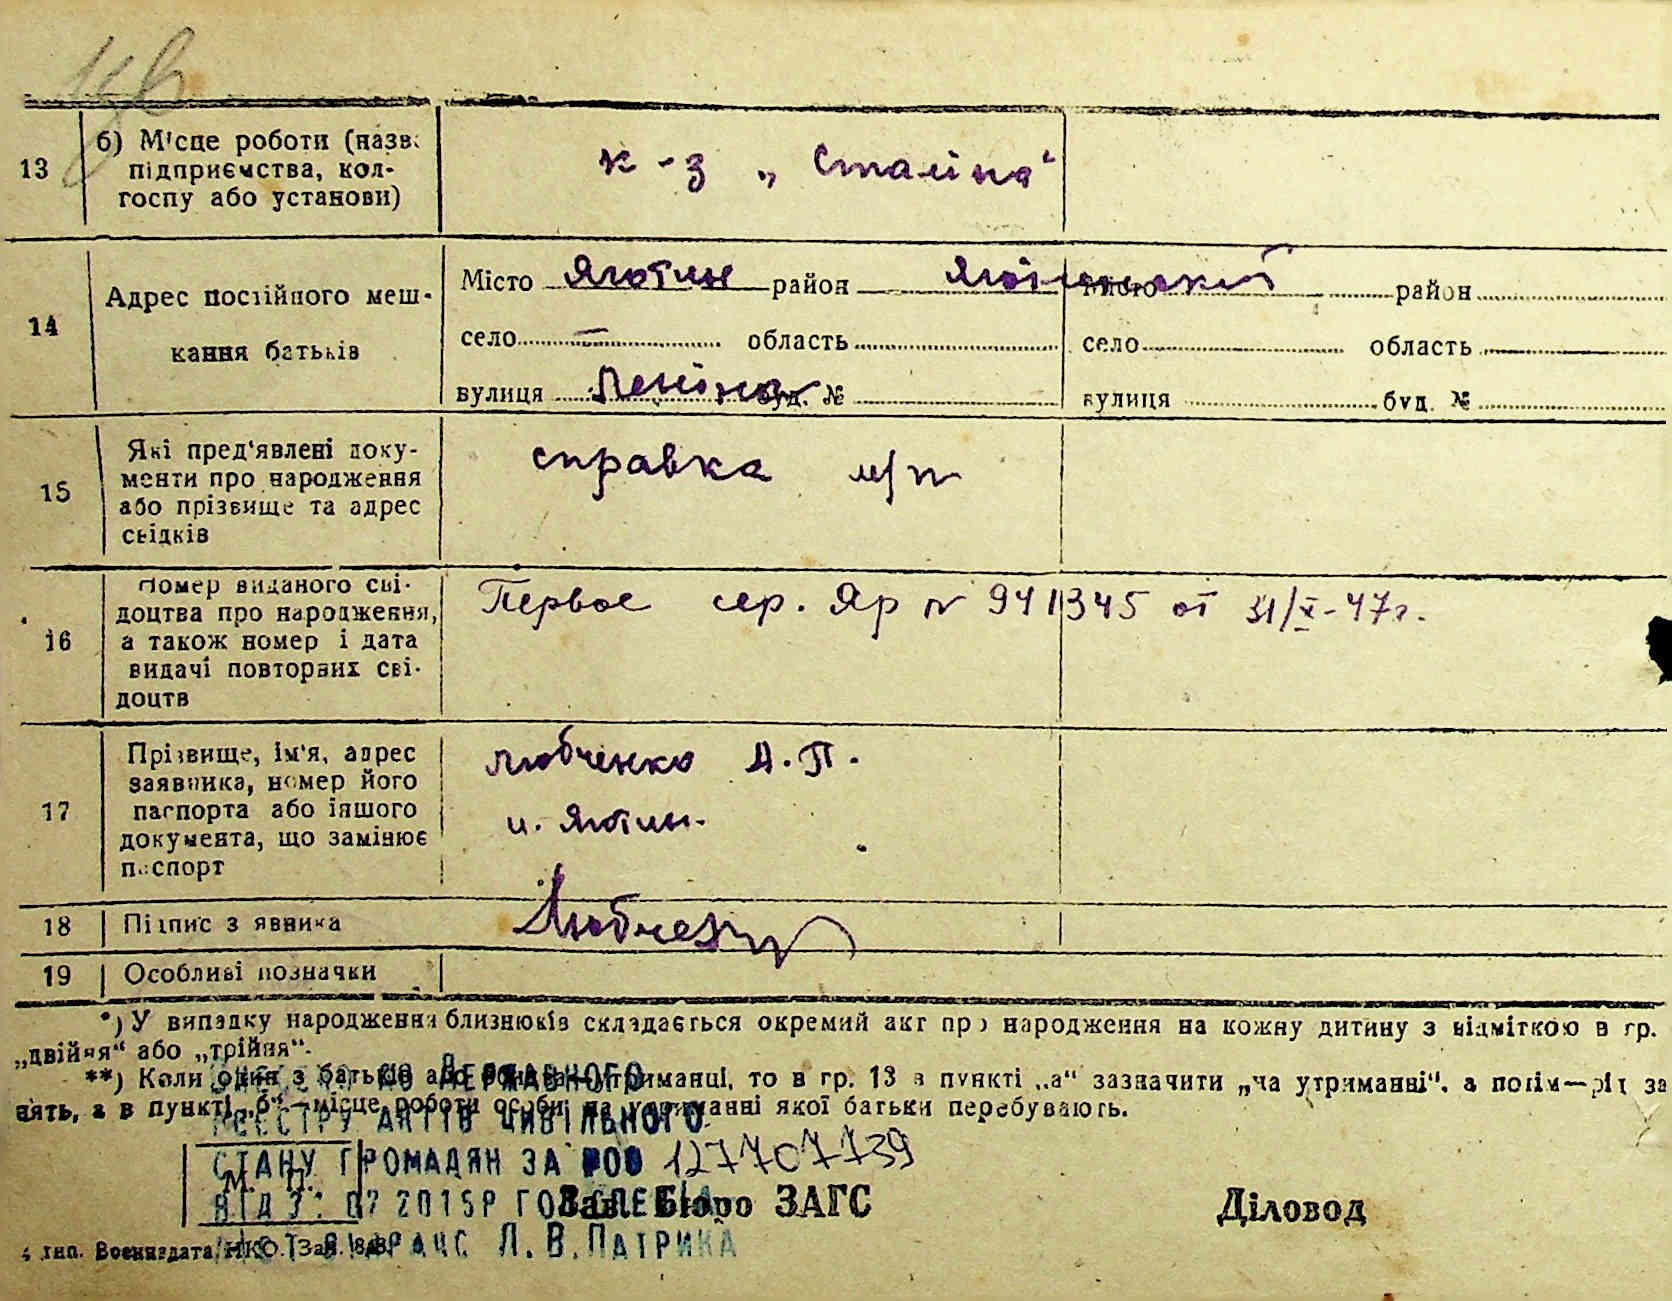 13
б) Місце роботи (назва
підприємства, кол-
госпу або установи)
к-з „Сталіна“
14
Адрес постійного меш-
кання батьків
Місто Яготин район Яготинський
село — область
вулиця Леніна буд. №
Місто район
село область
вулиця буд. №
15
Які пред'явлені доку-
менти про народження
або прізвище та адрес
свідків
справка м/п
16
Номер виданого сві-
доцтва про народження,
а також номер і дата
видачі повторних сві-
доцтв
Первое сер. Яр № 941345 от 31/X-47г.
17
Прізвище, ім'я, адрес
заявника, номер його
паспорта або іншого
документа, що замінює
паспорт
Любченко А.П.
Яготин.
18
Підпис заявника
19
Особливі позначки
*) У випадку народження близнюків складається окремий акт про народження на кожну дитину з відміткою в гр.
„двійня“ або „трійня“.
**) Коли один з батьків або на утриманці, то в гр. 13 в пункті „а“ зазначити „на утриманні“, а потім—рід за
нять, а в пункті „б“—місце роботи особи, на утриманні якої батьки перебувають.
ДО ДЕРЖАВНОГО
РЕЄСТРУ АКТІВ ЦИВІЛЬНОГО
СТАНУ ГРОМАДЯН ЗА №00 127707739
М. П.
2015Р
Зав. Бюро ЗАГС
Діловод
Л.В.ПАТРИКА
4 тип. Воениздата НКО. Зак.